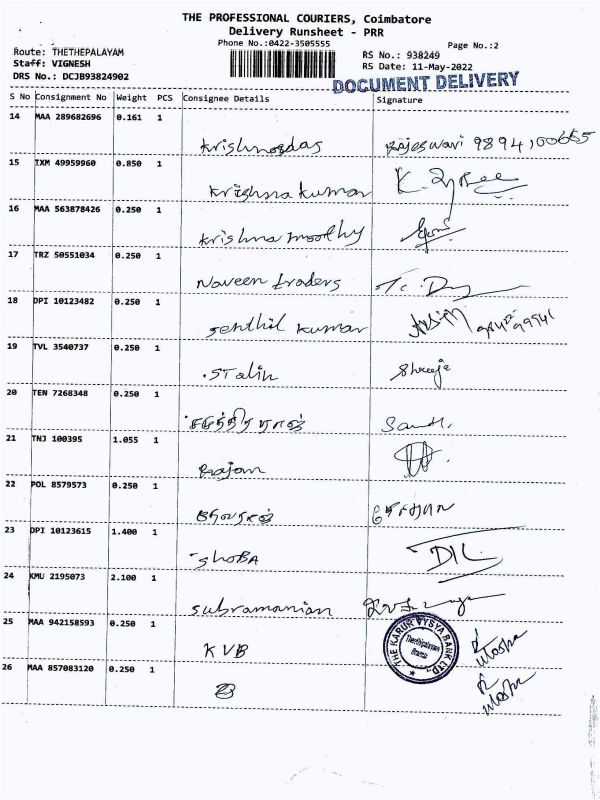 THE PROFESSIONAL COURIERS, Coimbatore
Delivery Runsheet - PRR
Phone No.:0422-3505555
Page No.:2
Route: THETHEPALAYAM
RS No.: 938249
Staff: VIGNESH
RS Date: 11-May-2022
DRS No.: DCJB93824902
DOCUMENT DELIVERY
S No Consignment No Weight PCS Consignee Details Signature
14 MAA 289682696 0.161 1
Krishnadas Rajeswari
15 IXM 49959960 0.850 1
Krishna kumar
16 MAA 563878426 0.250 1
Krishna moothy
17 TRZ 50551034 0.250 1
Naveen traders
18 DPI 10123482 0.250 1
Senthil kumar
19 TVL 3540737 0.250 1
Stalin
20 TEN 7268348 0.250 1
21 TNJ 100395 1.055 1
Rajam
22 POL 8579573 0.250 1
23 DPI 10123615 1.400 1
ShoBA
24 KMU 2195073 2.100 1
Subramanian
25 MAA 942158593 0.250 1
KVB
THE KARUR VYSYA BANK LTD.,
Thethipalayam
Branch
26 MAA 857083120 0.250 1